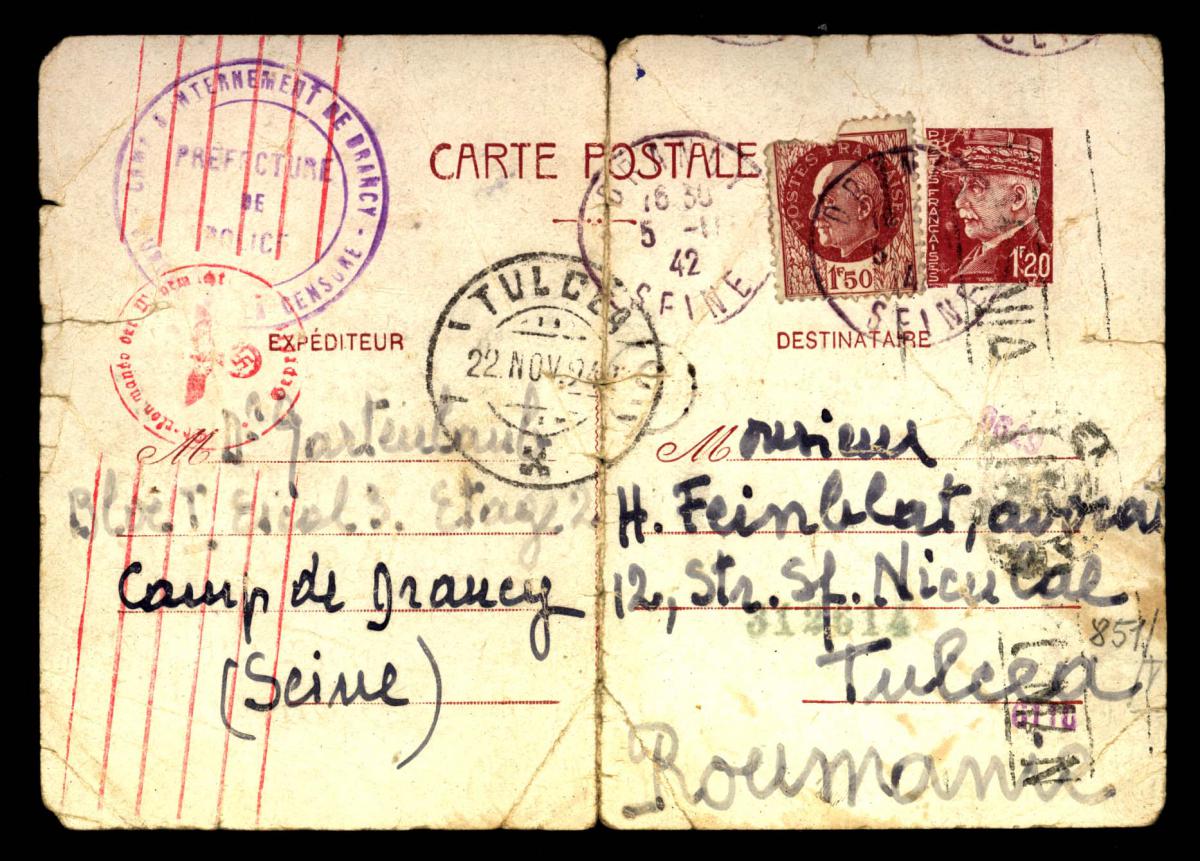 CAMP D'INTERNEMENT DE DRANCY
CENSURE
PRÉFECTURE
DE
POLICE
CARTE POSTALE
16 30
5 -11
42
SEINE
POSTES FRANÇAISES
1F50
SEINE
POSTES FRANÇAISES
1F20
TULCEA
22 NOV. 942
EXPÉDITEUR
DESTINATAIRE
M
Bloc I. Escal 3. Etage 2
Camp de Drancy
(Seine)
Monsieur
H. Feinblat, avocat
12, Str. Sf. Niculae
312614
851/
Tulcea
Roumanie